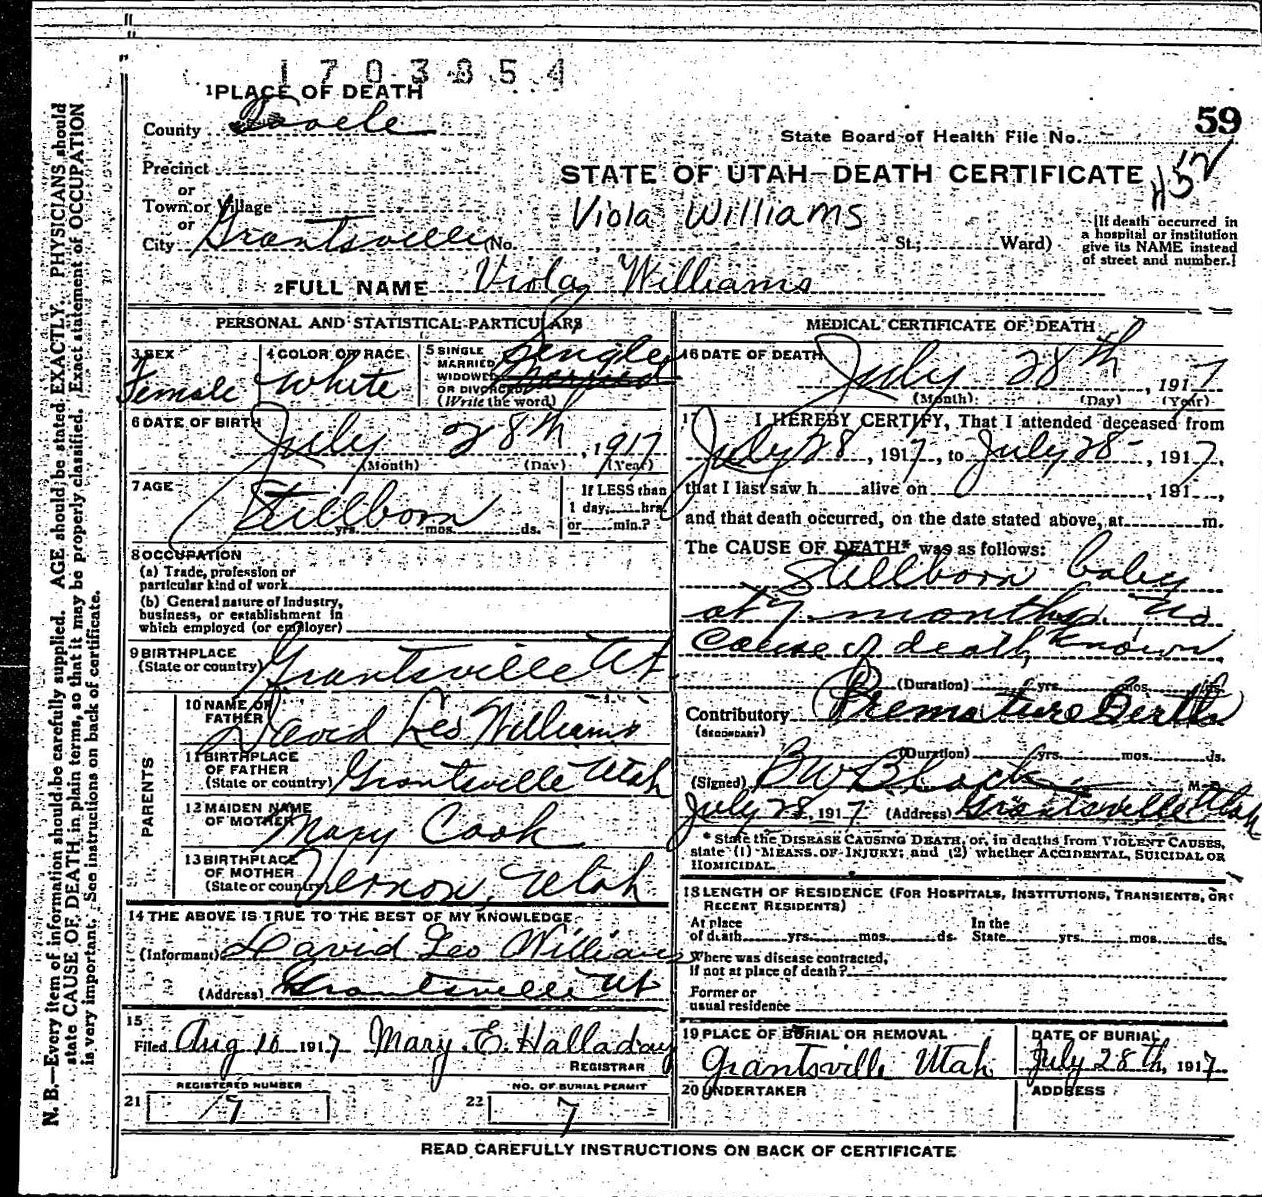 1703854
1 PLACE OF DEATH
59
County Tooele
State Board of Health File No.
Precinct
STATE OF UTAH—DEATH CERTIFICATE
or
Town or Village
Viola Williams
or
City Grantsville (No. , St.; Ward)
[If death occurred in
a hospital or institution
give its NAME instead
of street and number.]
2 FULL NAME Viola Williams
PERSONAL AND STATISTICAL PARTICULARS
3 SEX
Female
4 COLOR OR RACE
White
5 SINGLE
MARRIED
WIDOWED
OR DIVORCED
(Write the word)
Single
Married
6 DATE OF BIRTH
July 28th, 1917
(Month) (Day) (Year)
7 AGE
Stillborn
yrs. mos. ds.
If LESS than
1 day, hrs.
or min.?
8 OCCUPATION
(a) Trade, profession or
particular kind of work
(b) General nature of Industry,
business, or establishment in
which employed (or employer)
9 BIRTHPLACE
(State or country) Grantsville Ut
PARENTS
10 NAME OF
FATHER David Leo Williams
11 BIRTHPLACE
OF FATHER
(State or country) Grantsville Utah
12 MAIDEN NAME
OF MOTHER Mary Cook
13 BIRTHPLACE
OF MOTHER
(State or country) Vernon, Utah
14 THE ABOVE IS TRUE TO THE BEST OF MY KNOWLEDGE
(Informant) David Leo Williams
(Address) Grantsville Ut
15
Filed Aug 10 1917 Mary E. Halladay
REGISTRAR
REGISTERED NUMBER
21 17
NO. OF BURIAL PERMIT
22 7
MEDICAL CERTIFICATE OF DEATH
16 DATE OF DEATH
July 28th, 1917
(Month) (Day) (Year)
17 I HEREBY CERTIFY, That I attended deceased from
July 28, 1917, to July 28, 1917,
that I last saw h alive on , 191 ,
and that death occurred, on the date stated above, at m.
The CAUSE OF DEATH* was as follows:
Stillborn baby
at 7 months. No
cause of death known
(Duration) yrs. mos. ds.
Contributory Premature Berth
(SECONDARY)
(Duration) yrs. mos. ds.
(Signed) M. D.
July 28, 1917 (Address) Grantsville Utah
* State the DISEASE CAUSING DEATH, or, in deaths from VIOLENT CAUSES,
state (1) MEANS OF INJURY; and (2) whether ACCIDENTAL, SUICIDAL OR
HOMICIDAL.
18 LENGTH OF RESIDENCE (FOR HOSPITALS, INSTITUTIONS, TRANSIENTS, OR
RECENT RESIDENTS)
At place
of death yrs. mos. ds.
In the
State yrs. mos. ds.
Where was disease contracted,
if not at place of death?
Former or
usual residence
19 PLACE OF BURIAL OR REMOVAL
Grantsville Utah
DATE OF BURIAL
July 28th, 1917
20 UNDERTAKER
ADDRESS
READ CAREFULLY INSTRUCTIONS ON BACK OF CERTIFICATE
N. B.—Every item of information should be carefully supplied. AGE should be stated EXACTLY. PHYSICIANS should
state CAUSE OF DEATH in plain terms, so that it may be properly classified. Exact statement of OCCUPATION
is very important. See instructions on back of certificate.